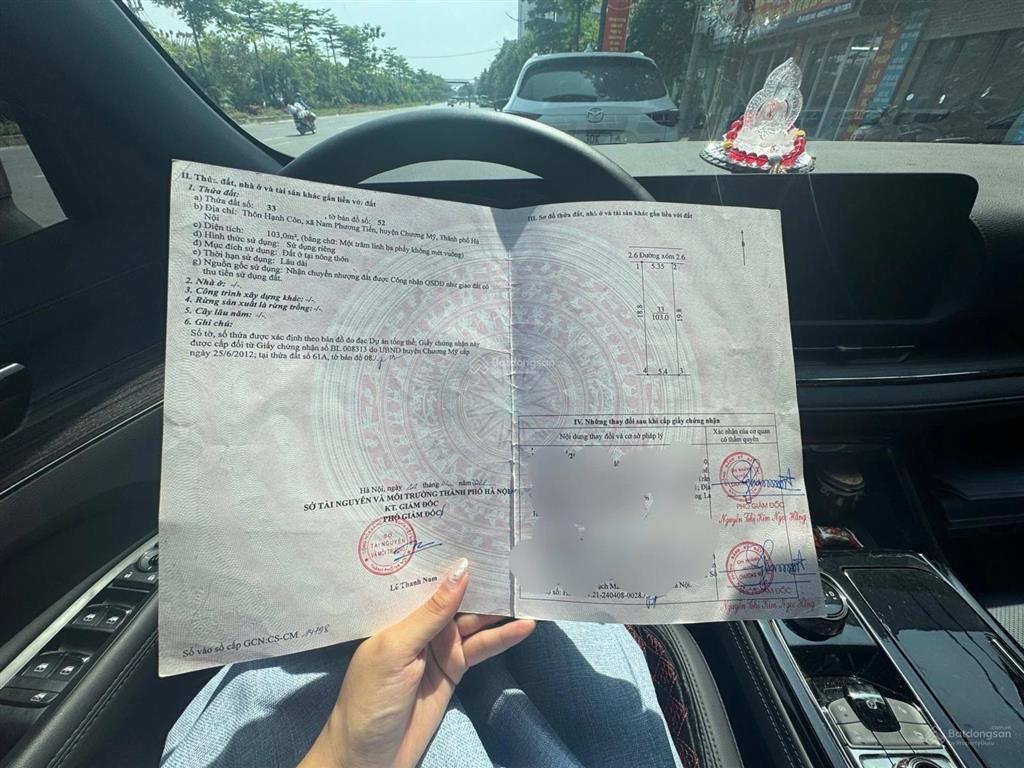 II. Thửa đất, nhà ở và tài sản khác gắn liền với đất
1. Thửa đất:
a) Thửa đất số: 33 , tờ bản đồ số: 52
b) Địa chỉ: Thôn Hạnh Côn, xã Nam Phương Tiến, huyện Chương Mỹ, Thành phố Hà
Nội
c) Diện tích: 103,0m², (bằng chữ: Một trăm linh ba phẩy không mét vuông)
d) Hình thức sử dụng: Sử dụng riêng
đ) Mục đích sử dụng: Đất ở tại nông thôn
e) Thời hạn sử dụng: Lâu dài
g) Nguồn gốc sử dụng: Nhận chuyển nhượng đất được Công nhận QSDĐ như giao đất có
thu tiền sử dụng đất.
2. Nhà ở: -/-
3. Công trình xây dựng khác: -/-
4. Rừng sản xuất là rừng trồng: -/-
5. Cây lâu năm: -/-
6. Ghi chú:
Số tờ, số thửa được xác định theo bản đồ đo đạc Dự án tổng thể; Giấy chứng nhận này
được cấp đổi từ Giấy chứng nhận số BL 008313 do UBND huyện Chương Mỹ cấp
ngày 25/6/2012; tại thửa đất số 61A, tờ bản đồ 08
Hà Nội, ngày tháng năm
SỞ TÀI NGUYÊN VÀ MÔI TRƯỜNG THÀNH PHỐ HÀ NỘI
KT. GIÁM ĐỐC
PHÓ GIÁM ĐỐC
SỞ
TÀI NGUYÊN
VÀ MÔI TRƯỜNG
Lê Thanh Nam
Số vào sổ cấp GCN:CS-CM
III. Sơ đồ thửa đất, nhà ở và tài sản khác gắn liền với đất
2.6 Đường xóm 2.6
1 5.35 2
18.8
33
103.0
19.8
4 5.4 3
IV. Những thay đổi sau khi cấp giấy chứng nhận
Nội dung thay đổi và cơ sở pháp lý
Xác nhận của cơ quan
có thẩm quyền
PHÓ GIÁM ĐỐC
Nguyễn Thị Kim Ngọc Hằng
21-240408-0028
GIÁM ĐỐC
Nguyễn Thị Kim Ngọc Hằng
Batdongsan
Batdongsan
by PropertyGuru